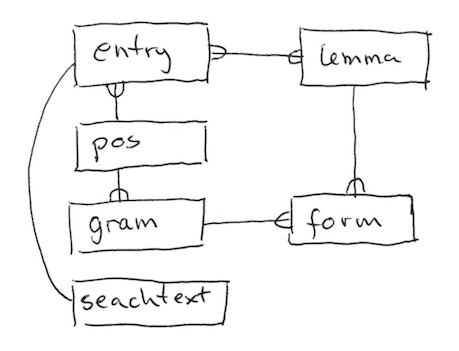 entry
lemma
pos
gram
form
seachtext